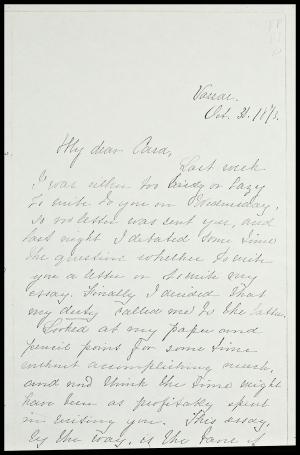 Vassar.
Oct. 30, 1873.
My dear Cara,
Last week
I was either too busy or lazy
to write to you on Wednesday,
so no letter was sent you, and
last night I debated some time
the question whether to write
you a letter or to write my
essay. Finally I decided that
my duty called me to the latter.
Looked at my paper and
pencil point for some time
without accomplishing much,
and now think the time might
have been as profitably spent
in writing you. This essay,
by the way, is the bane of